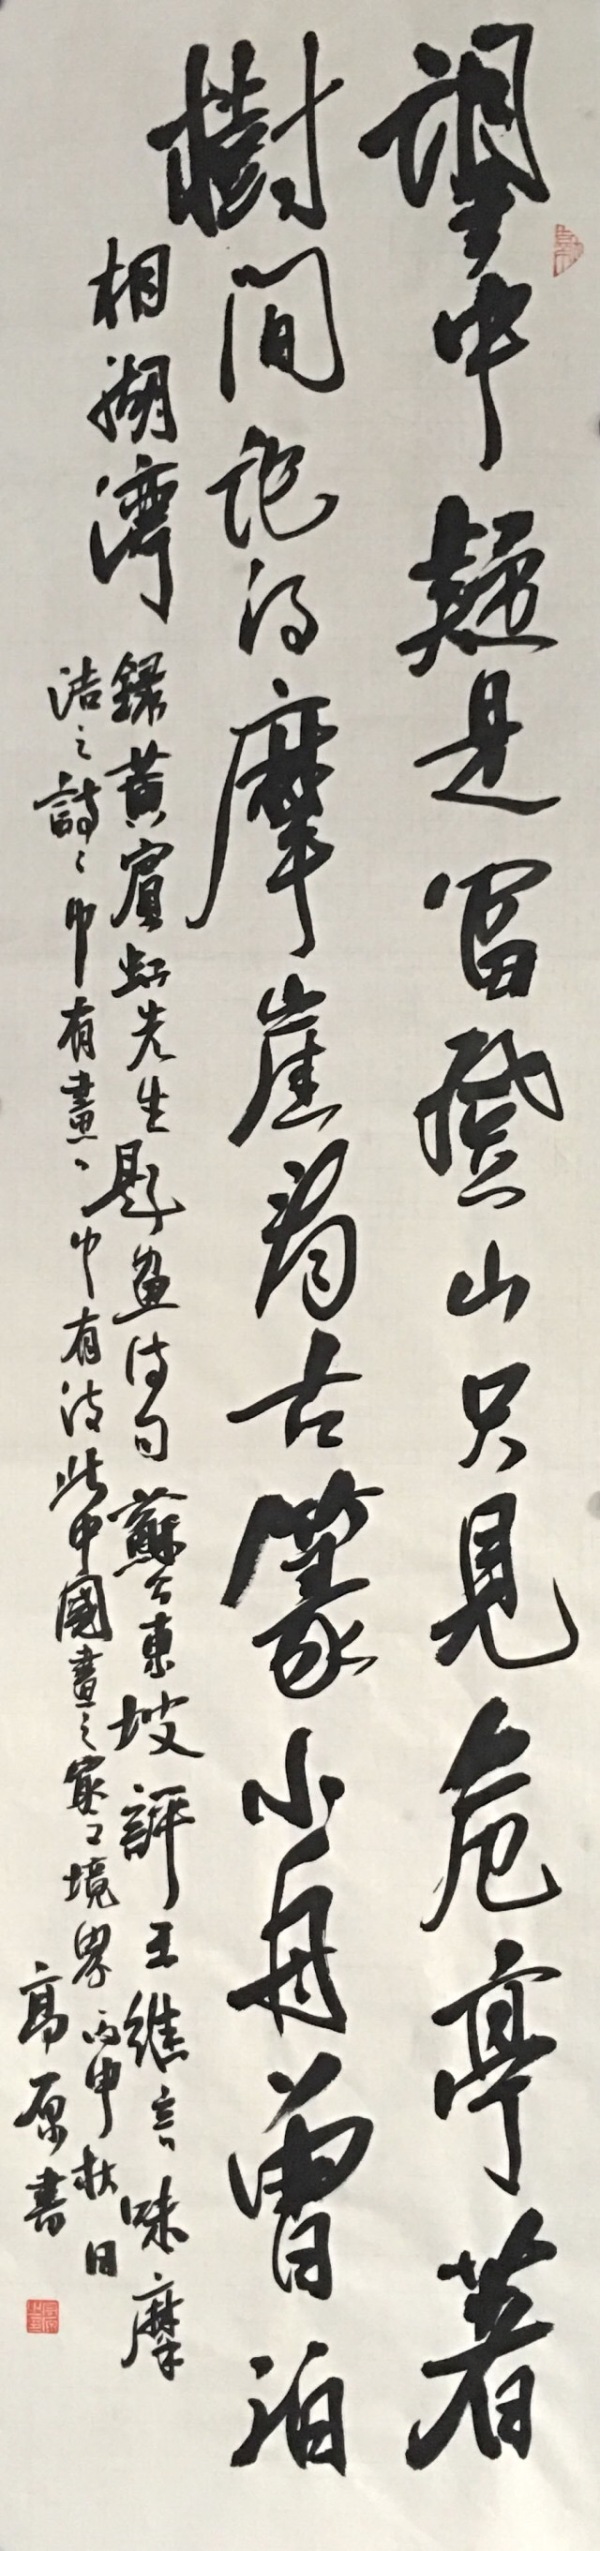 望中疑是富登山只見危亭著
樹間記得摩崖尋古篆小舟曾泊
相湖灣
錄黃賓虹先生題畫詩句蘇公東坡評王維言味摩
詰之詩々中有畫々中有詩此中國畫之最上境界丙申秋日
高原書